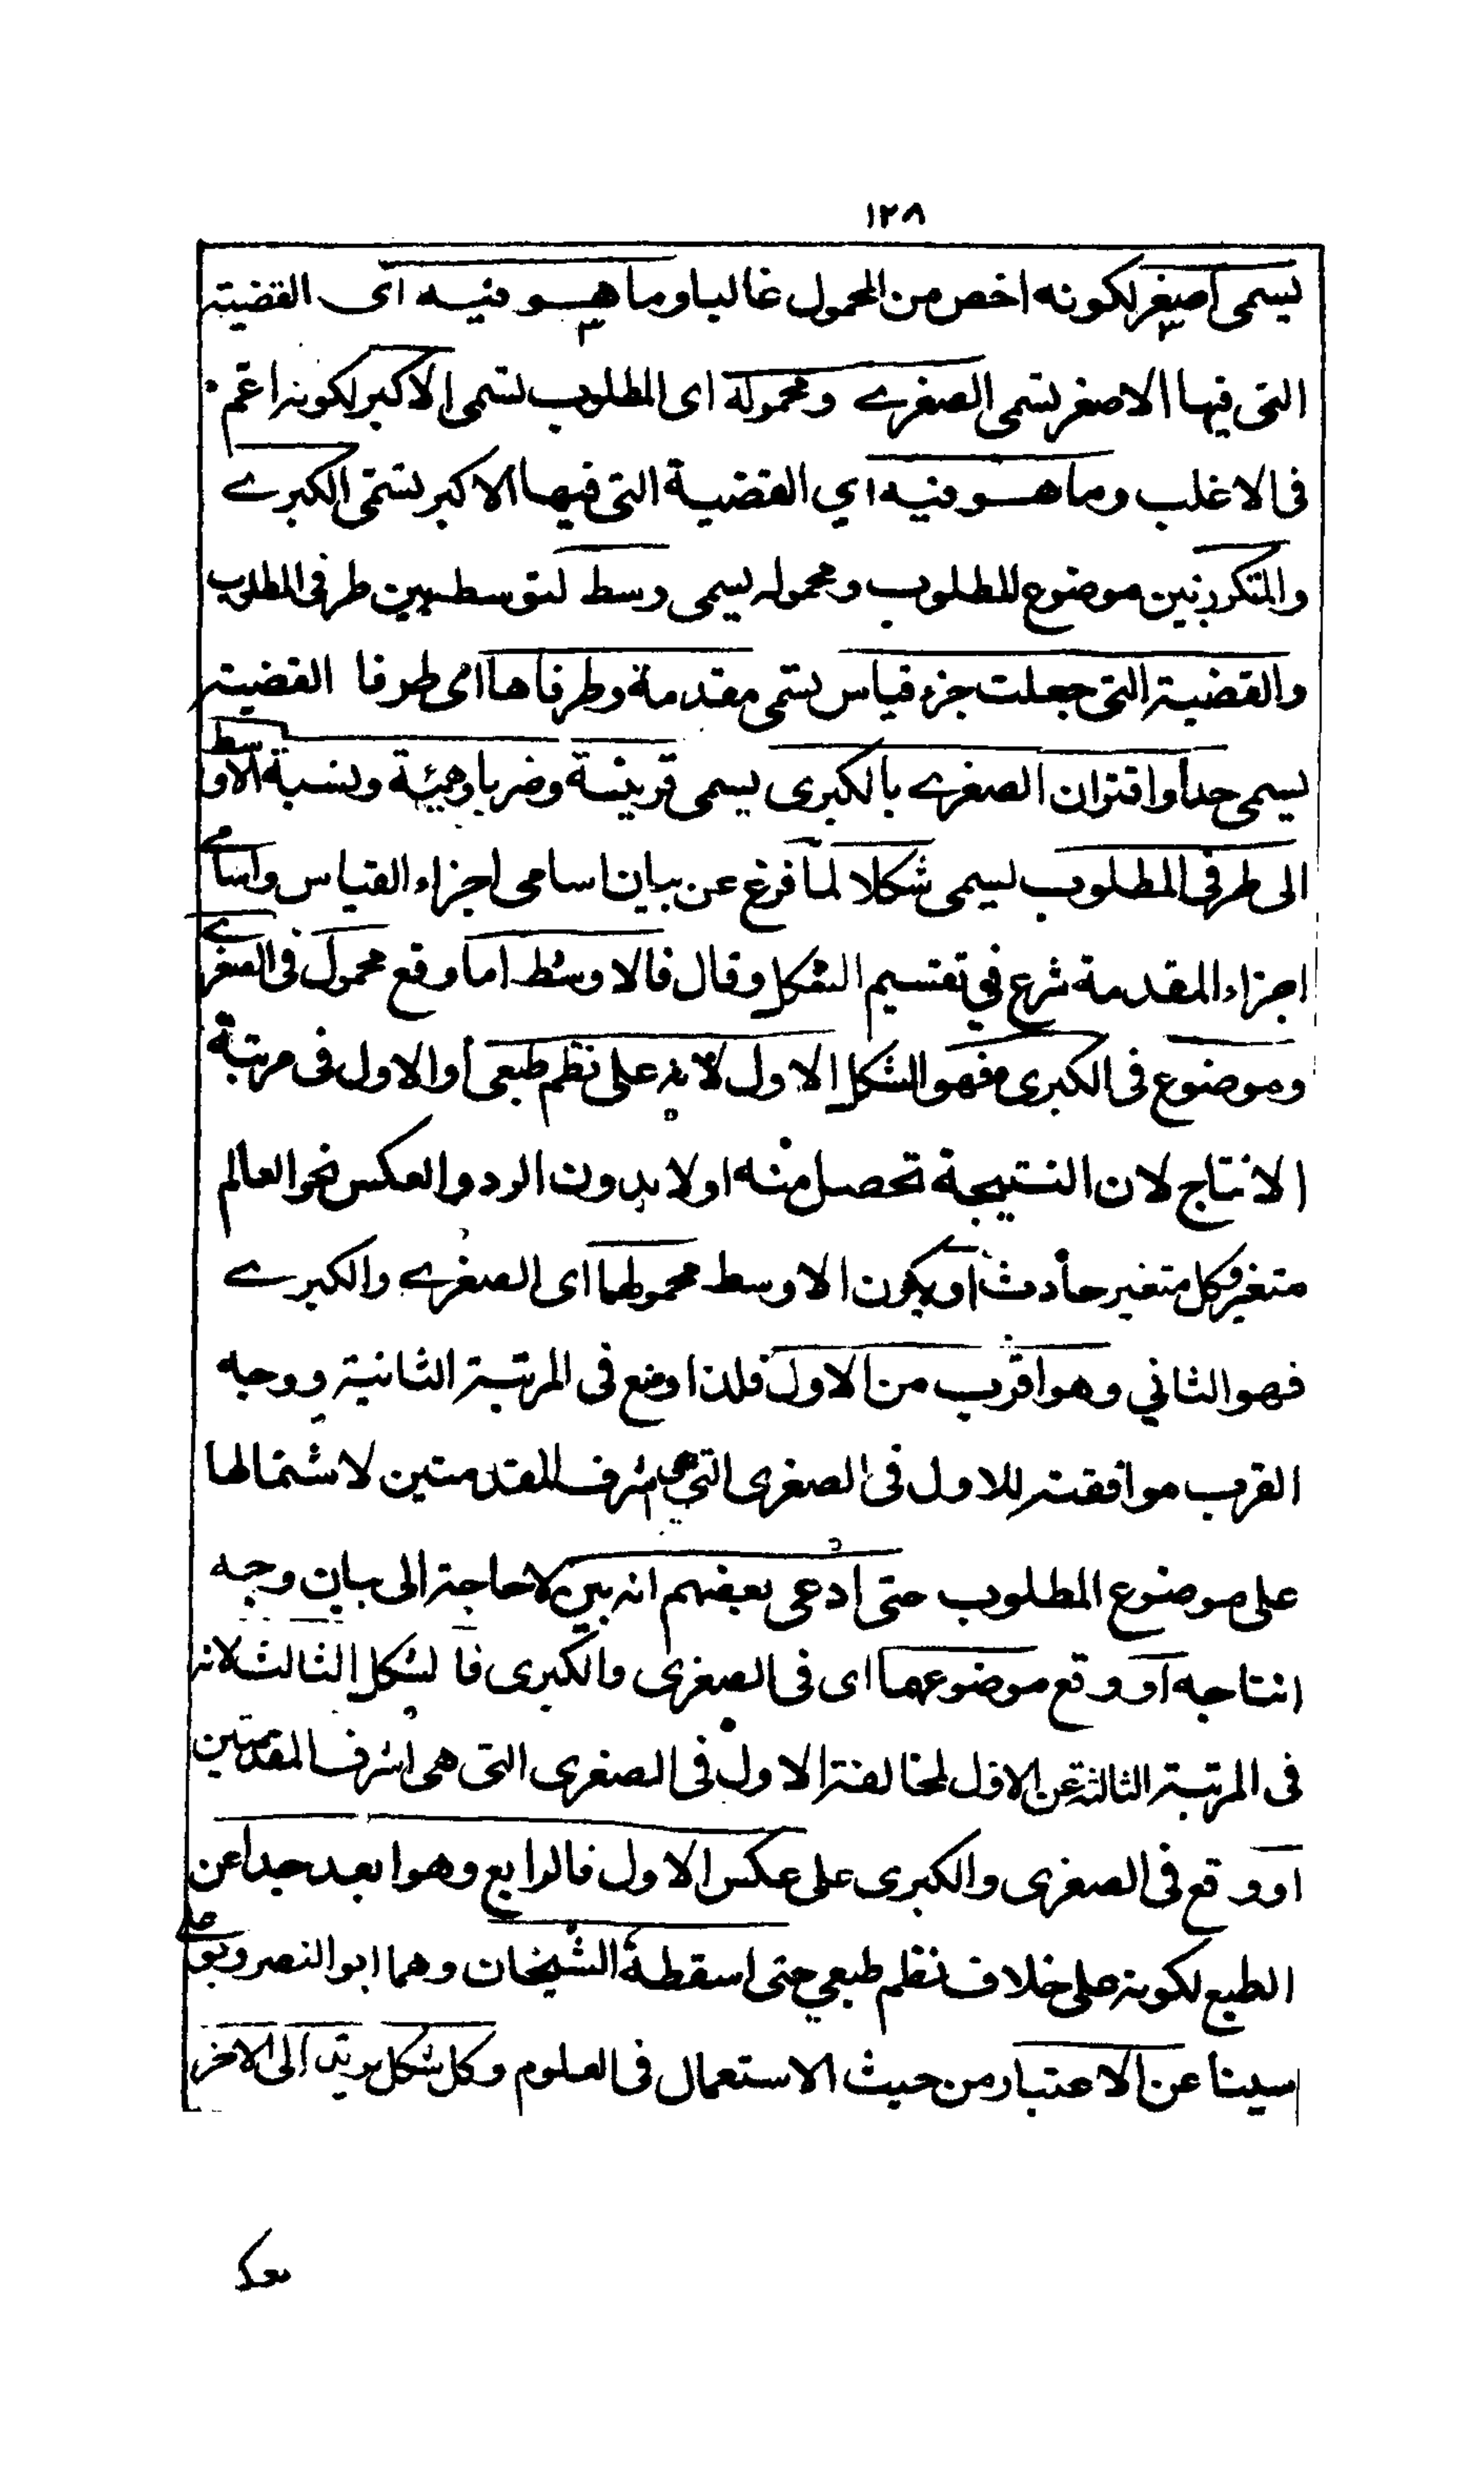 ١٢٨
يسمى اصغر لكونه اخص من المحمول غالبا وما هو فيه اى القضية
التى فيها الاصغر تسمى الصغرے ومحموله اى المطلوب تسمى الاكبر لكونه اعم
فى الاغلب وما هو فيه اي القضية التى فيها الاكبر تسمى الكبرے
والمتكرر بين موضوع المطلوب ومحموله يسمى وسط لتوسط بين طرفى المطلوب
والقضية التى جعلت جزء قياس تسمى مقدمة وطرفاها اى طرفا القضية
يسمى حدا واقتران الصغرے بالكبرى يسمى قرينة وضربا وهيئة ونسبة الاوسط
الى طرفى المطلوب يسمى شكلا لما فرغ عن بيان اسامى اجزاء القياس واسامے
اجزاء المقدمة شرع في تقسيم الشكل وقال فالاوسط اما وقع محمول فى الصغرے
وموضوع فى الكبرى فهو الشكل الاول لانه على نظم طبعى او الاول فى مرتبة
الانتاج لان النتيجة تحصل منه اولا بدون الرد والعكس نحو العالم
متغير وكل متغير حادث او يكون الاوسط محمولهما اى الصغرے والكبرے
فهو الثاني وهو اقرب من الاول فلذا وضع فى المرتبة الثانية ووجه
القرب موافقته للاول فى الصغرى التي هى اشرف المقدمتين لاشتمالها
على موضوع المطلوب حتى ادعى بعضهم انه بين لا حاجة الى بيان وجه
انتاجه او وقع موضوعهما اى فى الصغرى والكبرى فا لشكل الثالث لانه
فى المرتبة الثالثة عن الاول لمخالفة الاول فى الصغرى التى هى اشرف المقدمتين
او وقع فى الصغرى والكبرى على عكس الاول فالرابع وهو ابعد جدا عن
الطبع لكونه على خلاف نظم طبعي حتى اسقطه الشيخان وهما ابو النصر وبوعلے
سينا عن الاعتبار من حيث الاستعمال فى العلوم وكل شكل يرتد الى الاخر